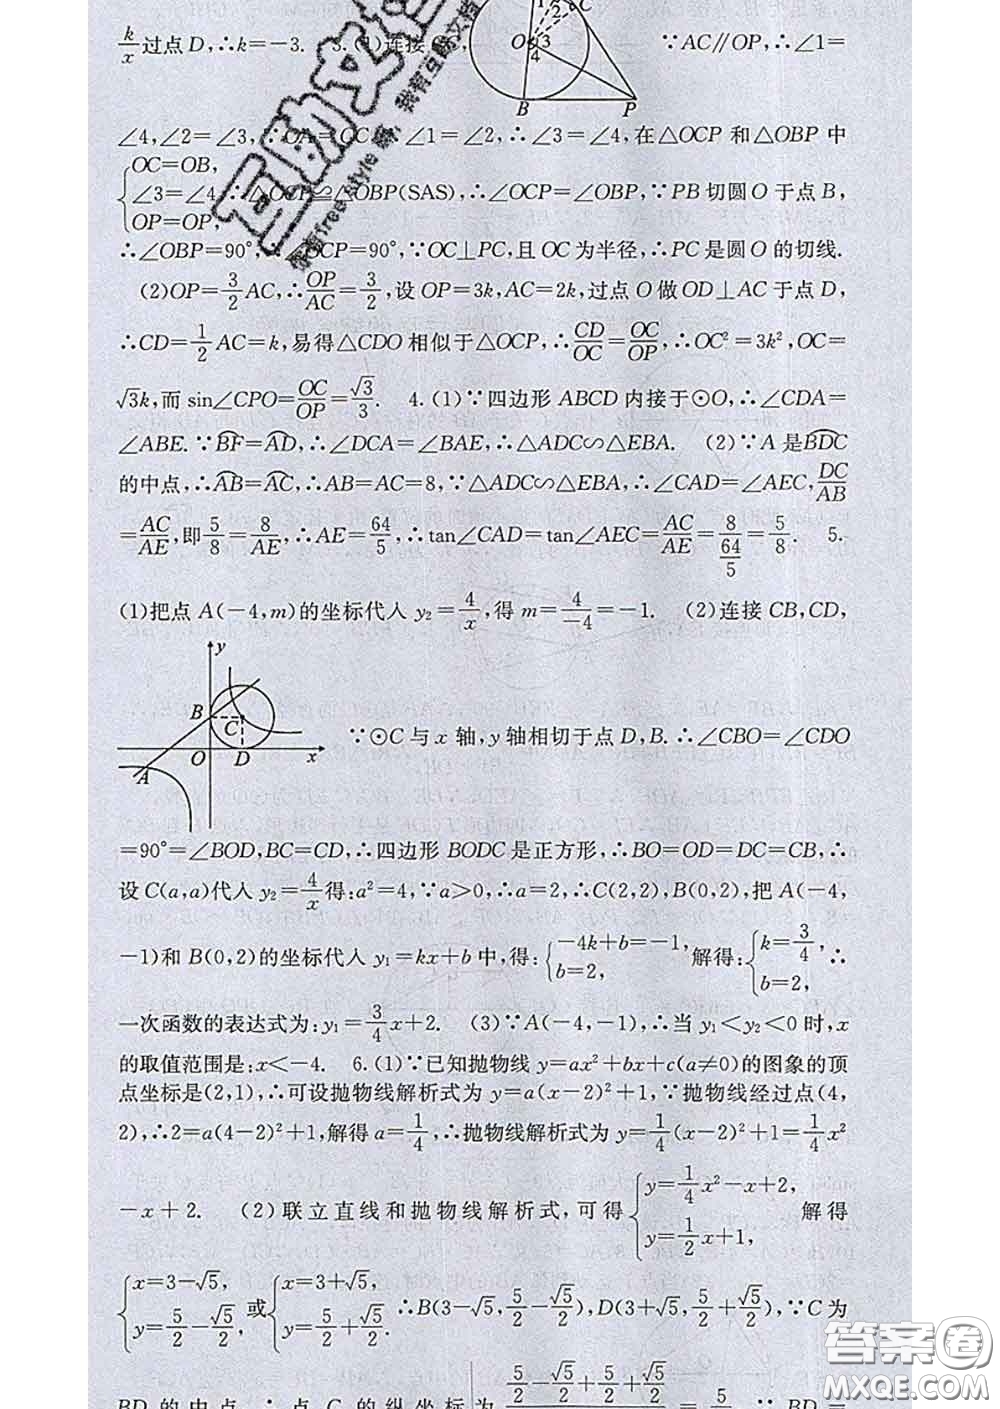 k/x 过点 D,∴k=-3. 3.(1)连接 ∵AC∥OP,∴∠1=
1 2 C O 3 4 B P
∠4,∠2=∠3,∵OA=OC ∠1=∠2,∴∠3=∠4,在△OCP 和△OBP 中
{OC=OB,
∠3=∠4 ∴△OCP≌△OBP(SAS),∴∠OCP=∠OBP,∵PB 切圆 O 于点 B,
OP=OP,
∴∠OBP=90°,∴∠OCP=90°,∵OC⊥PC,且 OC 为半径,∴PC 是圆 O 的切线.
(2)OP=3/2 AC,∴OP/AC=3/2,设 OP=3k,AC=2k,过点 O 做 OD⊥AC 于点 D,
∴CD=1/2 AC=k,易得△CDO 相似于△OCP,∴CD/OC=OC/OP,∴OC²=3k²,OC=
√3k,而 sin∠CPO=OC/OP=√3/3. 4.(1)∵四边形 ABCD 内接于⊙O,∴∠CDA=
∠ABE.∵BF⌒=AD⌒,∴∠DCA=∠BAE,∴△ADC∽△EBA. (2)∵A 是BDC⌒
的中点,∴AB⌒=AC⌒,∴AB=AC=8,∵△ADC∽△EBA,∴∠CAD=∠AEC,DC/AB
=AC/AE,即5/8=8/AE,∴AE=64/5,∴tan∠CAD=tan∠AEC=AC/AE=8/(64/5)=5/8. 5.
(1)把点 A(-4,m)的坐标代人 y₂=4/x,得 m=4/-4=-1. (2)连接 CB,CD,
y B C O D x A
∵⊙C 与 x 轴,y 轴相切于点 D,B.∴∠CBO=∠CDO
=90°=∠BOD,BC=CD,∴四边形 BODC 是正方形,∴BO=OD=DC=CB,∴
设 C(a,a)代人 y₂=4/x得:a²=4,∵a>0,∴a=2,∴C(2,2),B(0,2),把 A(-4,
-1)和 B(0,2)的坐标代人 y₁=kx+b 中,得:{-4k+b=-1, b=2, 解得:{k=3/4, b=2, ∴
一次函数的表达式为:y₁=3/4x+2. (3)∵A(-4,-1),∴当 y₁<y₂<0 时,x
的取值范围是:x<-4. 6.(1)∵已知抛物线 y=ax²+bx+c(a≠0)的图象的顶
点坐标是(2,1),∴可设抛物线解析式为 y=a(x-2)²+1,∵抛物线经过点(4,
2),∴2=a(4-2)²+1,解得 a=1/4,∴抛物线解析式为 y=1/4(x-2)²+1=1/4x²
-x+2. (2)联立直线和抛物线解析式,可得{y=1/4x²-x+2, y=1/2x+1, 解得
{x=3-√5, y=5/2-√5/2, 或{x=3+√5, y=5/2+√5/2. ∴B(3-√5,5/2-√5/2),D(3+√5,5/2+√5/2),∵C 为
BD 的中点,∴点 C 的纵坐标为 5/2-√5/2+5/2+√5/2 = 5 ∵BD=
答案圈
MXQE.COM